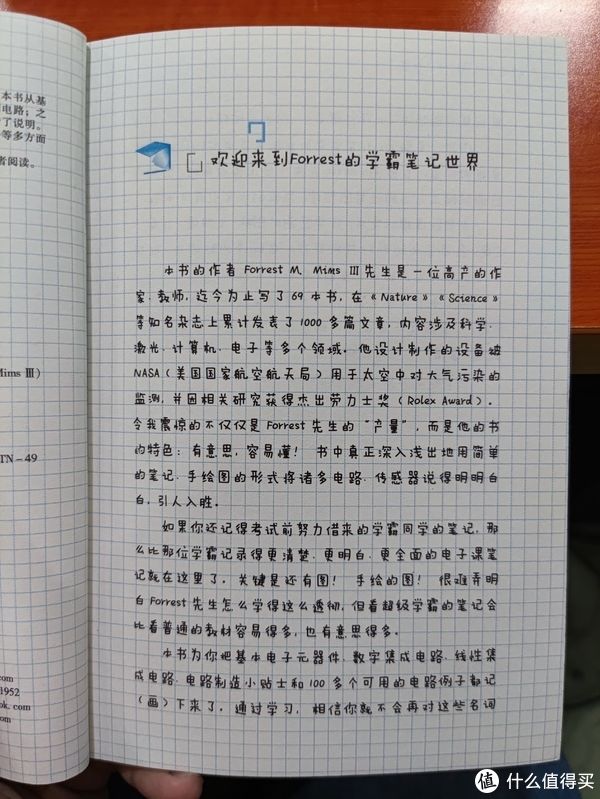 本书从基
电路；之
了说明。
等多方面
者阅读。
Mims Ⅲ)
TN-49
com
1952
ok. com
com
欢迎来到Forrest的学霸笔记世界
本书的作者 Forrest M. Mims Ⅲ先生是一位高产的作
家、教师，迄今为止写了 69 本书，在《Nature》《Science》
等知名杂志上累计发表了 1000 多篇文章，内容涉及科学、
激光、计算机、电子等多个领域。他设计制作的设备被
NASA（美国国家航空航天局）用于太空中对大气污染的
监测，并因相关研究获得杰出劳力士奖（Rolex Award）。
令我震惊的不仅仅是 Forrest 先生的“产量”，而是他的书
的特色：有意思，容易懂！ 书中真正深入浅出地用简单
的笔记、手绘图的形式将诸多电路、传感器说得明明白
白，引人入胜。
如果你还记得考试前努力借来的学霸同学的笔记，那
么比那位学霸记录得更清楚、更明白、更全面的电子课笔
记就在这里了。关键是还有图！ 手绘的图！ 很难弄明
白 Forrest 先生怎么学得这么透彻，但看超级学霸的笔记会
比看普通的教材容易得多，也有意思得多。
本书为你把基本电子元器件、数字集成电路、线性集
成电路、电路制造小贴士和 100 多个可用的电路例子都记
（画）下来了。通过学习，相信你就不会再对这些名词
值 什么值得买